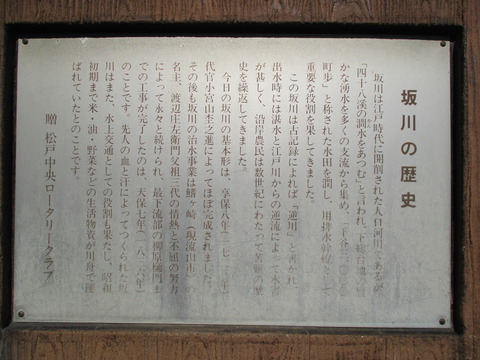 坂川の歴史
坂川は江戸時代に開削された人口河川であるが
「四十八渓の澗水をあつむ」と言われ、下総台地の豊
かな湧水を多くの支流から集め、「
町歩」と称された水田を潤し、用排水幹線として
重要な役割を果してきました。
この坂川は古記録によれば「逆川」と書かれ、
出水時には湛水と江戸川からの逆流によって水害
が甚しく、沿岸農民は数世紀にわたって苦難の歴
史を繰返してきました。
今日の坂川の基本形は、享保八年(一七二三年)
代官小宮山杢之進によってほぼ完成されました。
その後も坂川の治水事業は鰭ヶ崎(現流山市)の
名主、渡辺庄左衛門父祖三代の情熱と不屈の努力
によって永々と続けられ、最下流部の柳原樋門ま
での工事が完了したのは、天保七年(一八三六年)
のことです。先人の血と汗によってつくられた坂
川はまた、水上交通としての役割も果たし、昭和
初期まで米・油・野菜などの生活物資が川舟で運
ばれていたとのことです。
贈 松戸中央ロータリークラブ